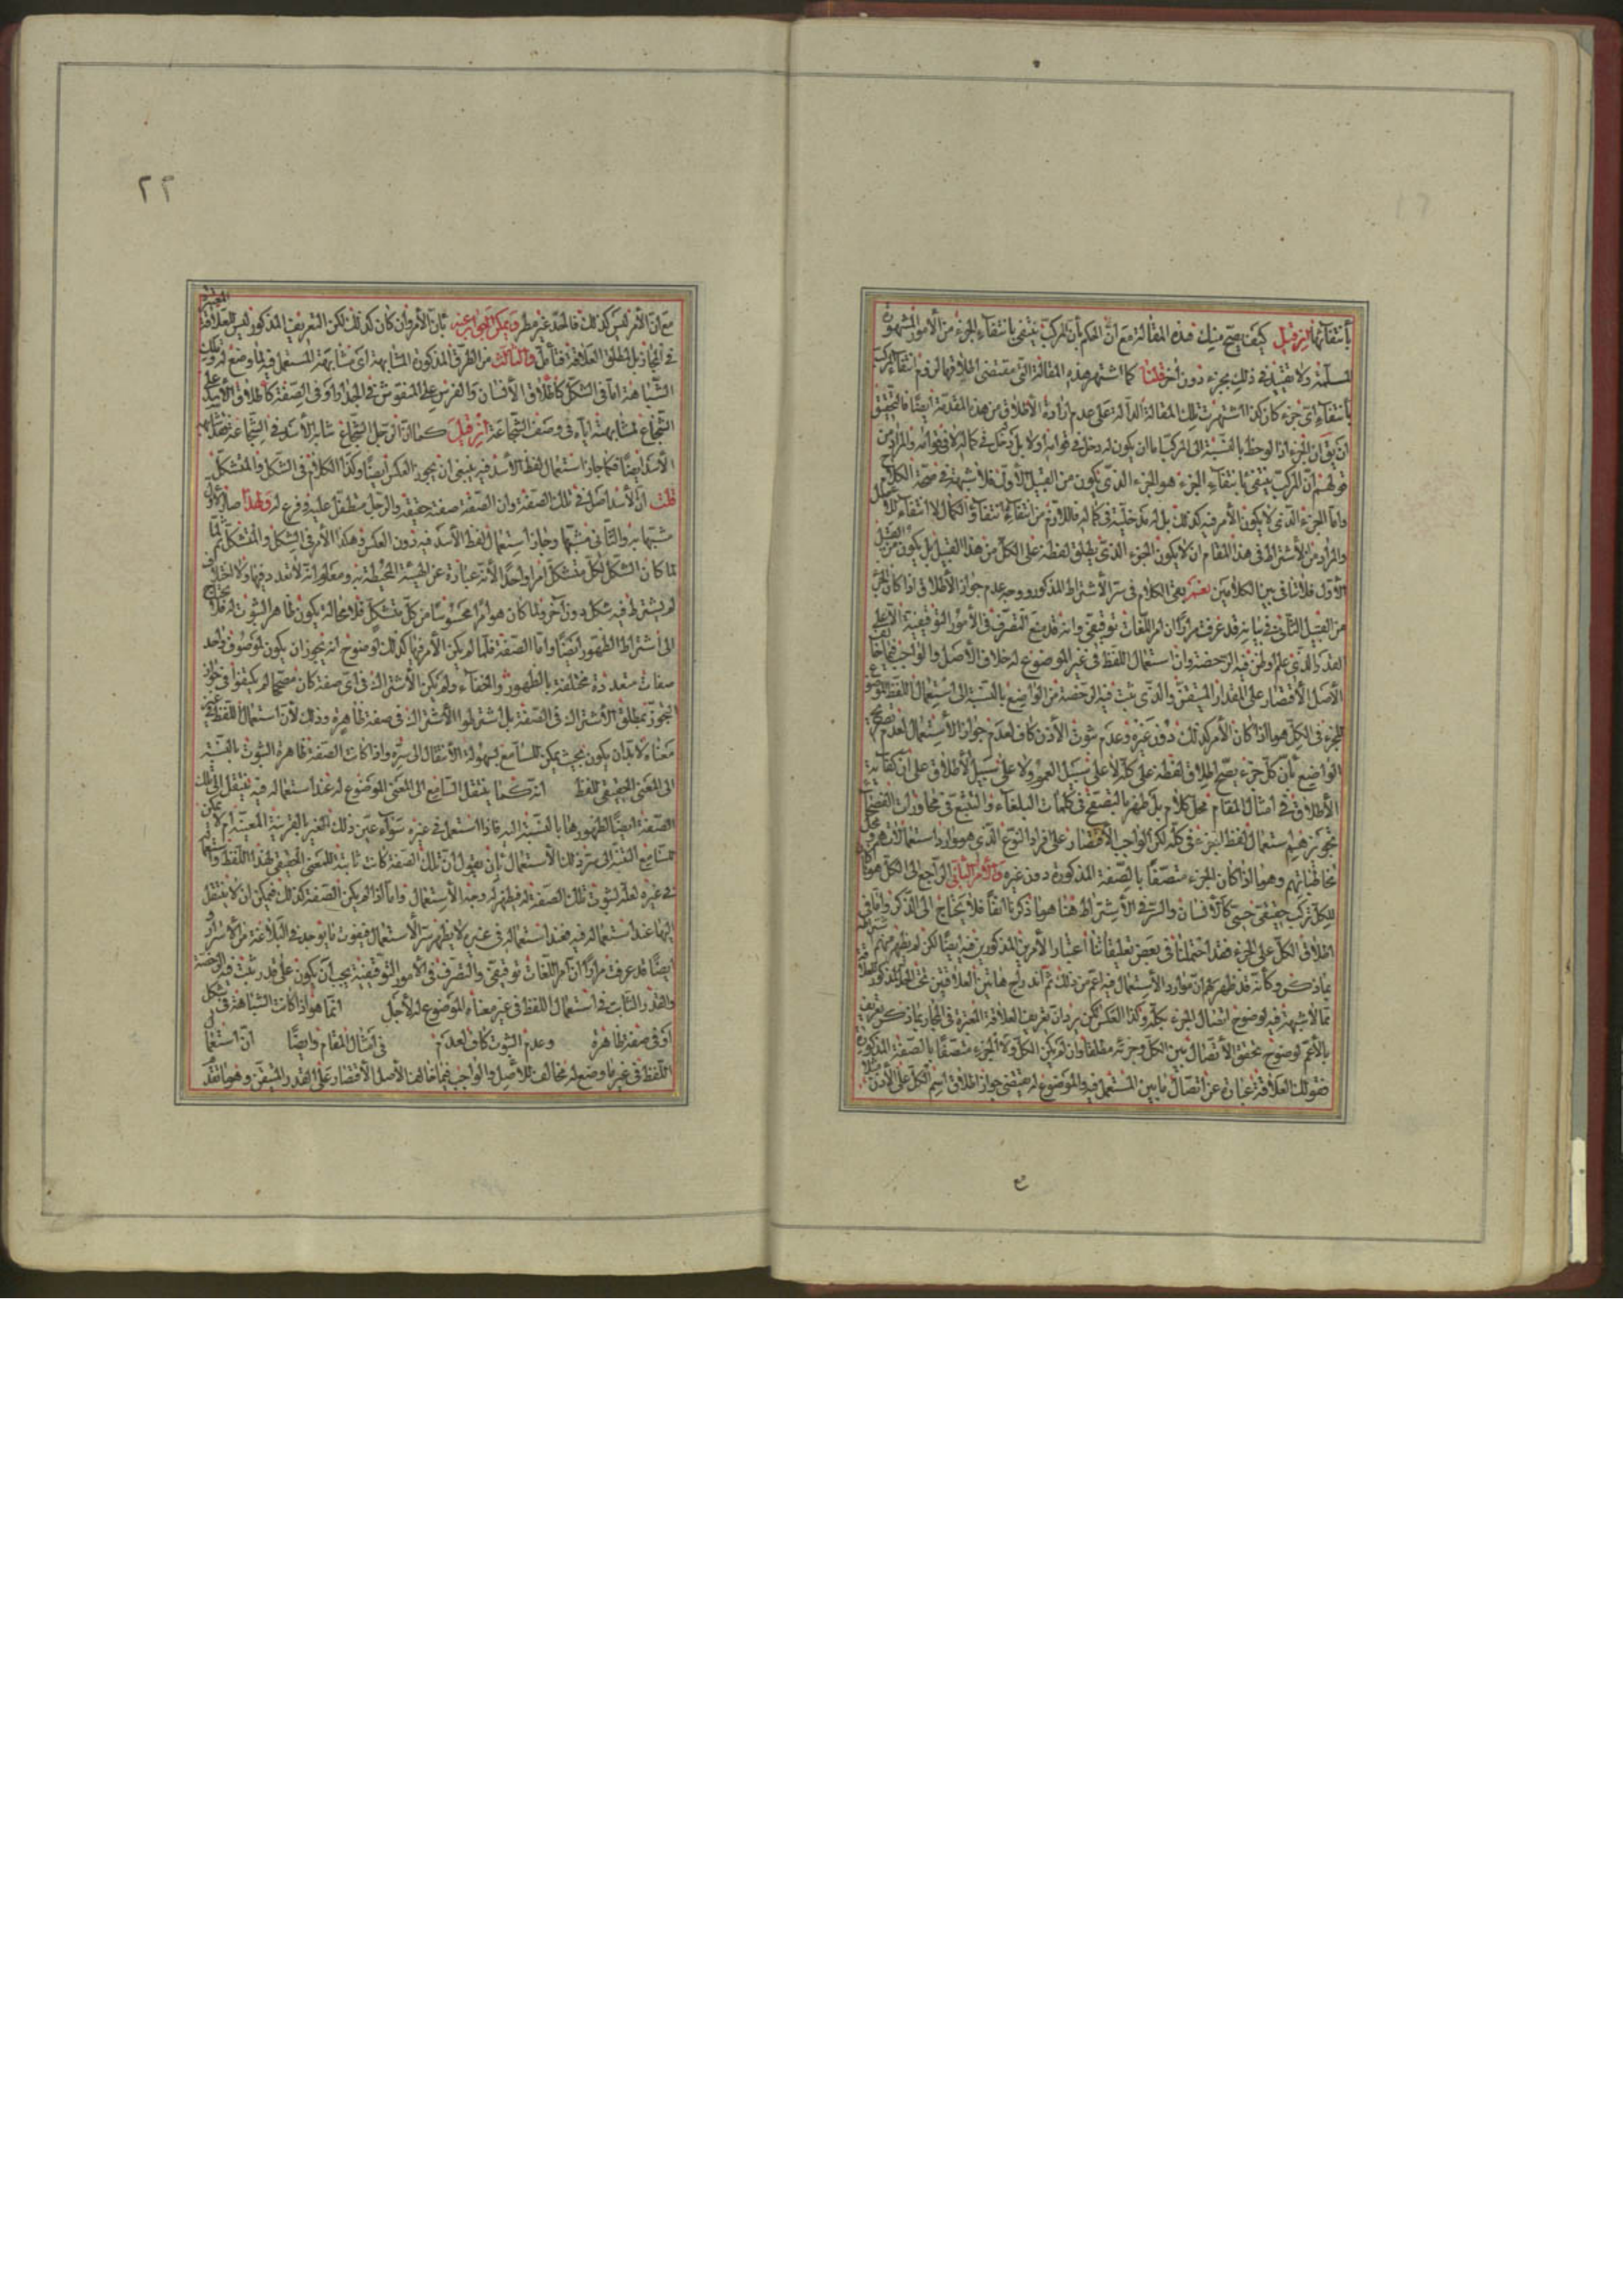 بأنتفائها فإن قيل كيف يصح منك هذه المقالة مع أن الحكم بأن المركب ينتفى بانتفاء الجزء من الأمور المشهورة
المسلمة ولا تقييد فى ذلك بجزء دون آخر قلنا كما اشتهر هذه المقالة التى مقتضى اطلاقها لزوم انتفاء المركب
بأنتفاء اى جزء كان كذا اشتهرت تلك المقالة الدالة على عدم ارادة الأطلاق من هذه المقدمة ايضا فالتحقيق
ان يق ان الجزء اذا لوحظ بالنسبة الى المركب اما ان يكون له دخل فى قوامه اولا بل دخل فى كماله لا فى قوامه والمراد من
قولهم ان المركب ينتفى بانتفاء الجزء هو الجزء الذى يكون من القبيل الأول فلا شبهة فى صحة الكلام
واما الجزء الذى لا يكون الأمر فيه كذلك بل له مدخلية فى كماله فاللازم من انتفائه انتفاء الكمال لا انتفاء الكل
والمراد من الأشتراط فى هذا المقام ان لا يكون الجزء الذى يطلق لفظه على الكل من هذا القبيل بل يكون من القبيل
الأول فلا تنافى بين الكلامين نعم بقى الكلام فى سر الأشتراط المذكور ووجه عدم جواز الأطلاق اذا كان الجزء
من القبيل الثانى فى بيانه قد عرفت مرارا ان امر اللغات توقيفى وانه قد منع التصرف فى الأمور التوقيفية الا على
القدر الذى علم او ظن فيه الرخصة وان استعمال اللفظ فى غير الموضوع له خلاف الأصل والواجب فيما خالف
الأصل الأقتصار على المقدار المتيقن والذى ثبت فيه الرخصة من الواضع بالنسبة الى استعمال اللفظ الموضوع
للجزء فى الكل هو ما اذا كان الأمر كذلك دون غيره وعدم ثبوت الأذن كاف لعدم جواز الأستعمال لعدم تصريح
الواضع بأن كل جزء يصح اطلاق لفظه على كله لا على سبيل العموم ولا على سبيل الأطلاق على ان كفاية
الأطلاق فى امثال المقام محل كلام بل ظهر بالتصفح فى كلمات البلغاء والتتبع فى محاورات الفصحاء
تجويزهم استعمال لفظ الجزء فى كله لكن الواجب الأقتصار على افراد النوع الذى هو موارد استعمالاتهم ومحل
مخاطباتهم وهو ما اذا كان الجزء متصفا بالصفة المذكورة دون غيره واما الأمر الثانى الراجع الى الكل هو ما
للكل تركب حقيقى حسى كالأنسان والسر فى الأشتراط هنا هو ما ذكرنا آنفا فلا يحتاج الى الذكر واما فى
اطلاق الكل على الجزء فقد احتملنا فى بعض تعليقاتنا اعتبار الأمرين المذكورين فيه ايضا لكن لم يظهر منهم اشتراطه
بما ذكر وكأنه قد ظهر لهم ان موارد الأستعمال فيه اعم من ذلك ثم اندراج هاتين العلاقتين تحت الحد المذكور للعلاقة
مما لا شبهة فيه لوضوح اتصال الجزء بكله وكذا العكس لكن يرد ان تعريف العلاقة المعتبرة فى المجاز بما ذكر تعريف
بالأعم لوضوح تحقق الأتصال بين الكل وجزئه مطلقا وان لم يكن الكل ولا الجزء متصفا بالصفة المذكورة
فقولك العلاقة عبارة عن اتصال ما بين المستعمل فيه والموضوع له يقتضى جواز اطلاق اسم الكل على الأذن مثلا
ع
٢٢
مع ان الأمر ليس كذلك فالحد غير مطرد ويمكن الجواب عنه بأن الأمر وان كان كذلك لكن التعريف المذكور ليس للعلاقة المعتبرة
فى المجاز بل لمطلق العلاقة فتأمل والثالث من الطرق المذكورة المشابهة اى مشابهة المستعمل فيه لما وضع له وتلك
الشباهة اما فى الشكل كأطلاق الأنسان والفرس على المنقوش فى الجدار او فى الصفة كأطلاق الأسد على
الشجاع لمشابهته اياه فى وصف الشجاعة فإن قيل كما ان الرجل الشجاع شابه الأسد فى الشجاعة فقد شابهه
الأسد ايضا فكما جاز استعمال لفظ الأسد فيه ينبغى ان يجوز العكس ايضا وكذا الكلام فى الشكل والمتشكل
قلت ان الأسد اصل فى تلك الصفة وان الصفة صفة حقيقة والرجل متطفل عليه وفرع له ولهذا صار الأول
مشبها به والثانى مشبها وجاز استعمال لفظ الأسد فيه دون العكس وهكذا الأمر فى الشكل والمتشكل ثم لما
لما كان الشكل لكل متشكل امرا واحدا لأنه عبارة عن الهيئة المحيطة به ومعلوم انه لا تعدد فيها ولا اختلاف
لم يشترط فيه شكل دون آخر ولما كان هو امرا محسوسا من كل متشكل فلا محالة يكون ظاهر الثبوت له فلا يحتاج
الى اشتراط الظهور ايضا واما الصفة فلما لم يكن الأمر فيها كذلك لوضوح انه يجوز ان يكون لموصوف واحد
صفات متعددة مختلفة بالظهور والخفاء ولم يكن الأشتراك فى اى صفة كان مصححا لم يكتفوا فى جواز
التجوز بمطلق الأشتراك فى الصفة بل اشترطوا الأشتراك فى صفة ظاهرة وذلك لأن استعمال اللفظ فى غير
معناه لابد ان يكون بحيث يمكن للسامع بسهولة الأنتقال الى سره واذا كانت الصفة ظاهرة الثبوت بالنسبة
الى المعنى الحقيقى للفظ انه كما ينتقل السامع الى المعنى الموضوع له عند استعماله فيه ينتقل الى تلك
الصفة ايضا لظهورها بالنسبة اليه فاذا استعمل فى غيره سواء عين ذلك الغير بالقرينة المعينة ام لا يمكن
للسامع التنبه الى سر ذلك الأستعمال بأن يقول ان تلك الصفة كانت ثابتة للمعنى الحقيقى لهذا اللفظ واستعماله
فى غيره لعله لثبوت تلك الصفة له فيظهر له وجه الأستعمال واما اذا لم يكن الصفة كذلك فيمكن ان لا ينتقل
اليها عند استعماله فيه فعند استعماله فى غيره لا يظهر سر الأستعمال فيفوت ما يوجد فى البلاغة من الأسرار و
ايضا قد عرفت مرارا ان امر اللغات توقيفى والتصرف فى الأمور التوقيفية يجب ان يكون على قدر ثبت فيه الرخصة
والقدر الثابت فى استعمال اللفظ فى غير معناه الموضوع له لأجل انما هو اذا كانت الشباهة فى شكل
او فى صفة ظاهرة وعدم الثبوت كاف لعدم فى امثال المقام وايضا ان استعمال
اللفظ فى غير ما وضع له مخالف للأصل والواجب فيما خالف الأصل الأقتصار على القدر المتيقن وهو ما قد